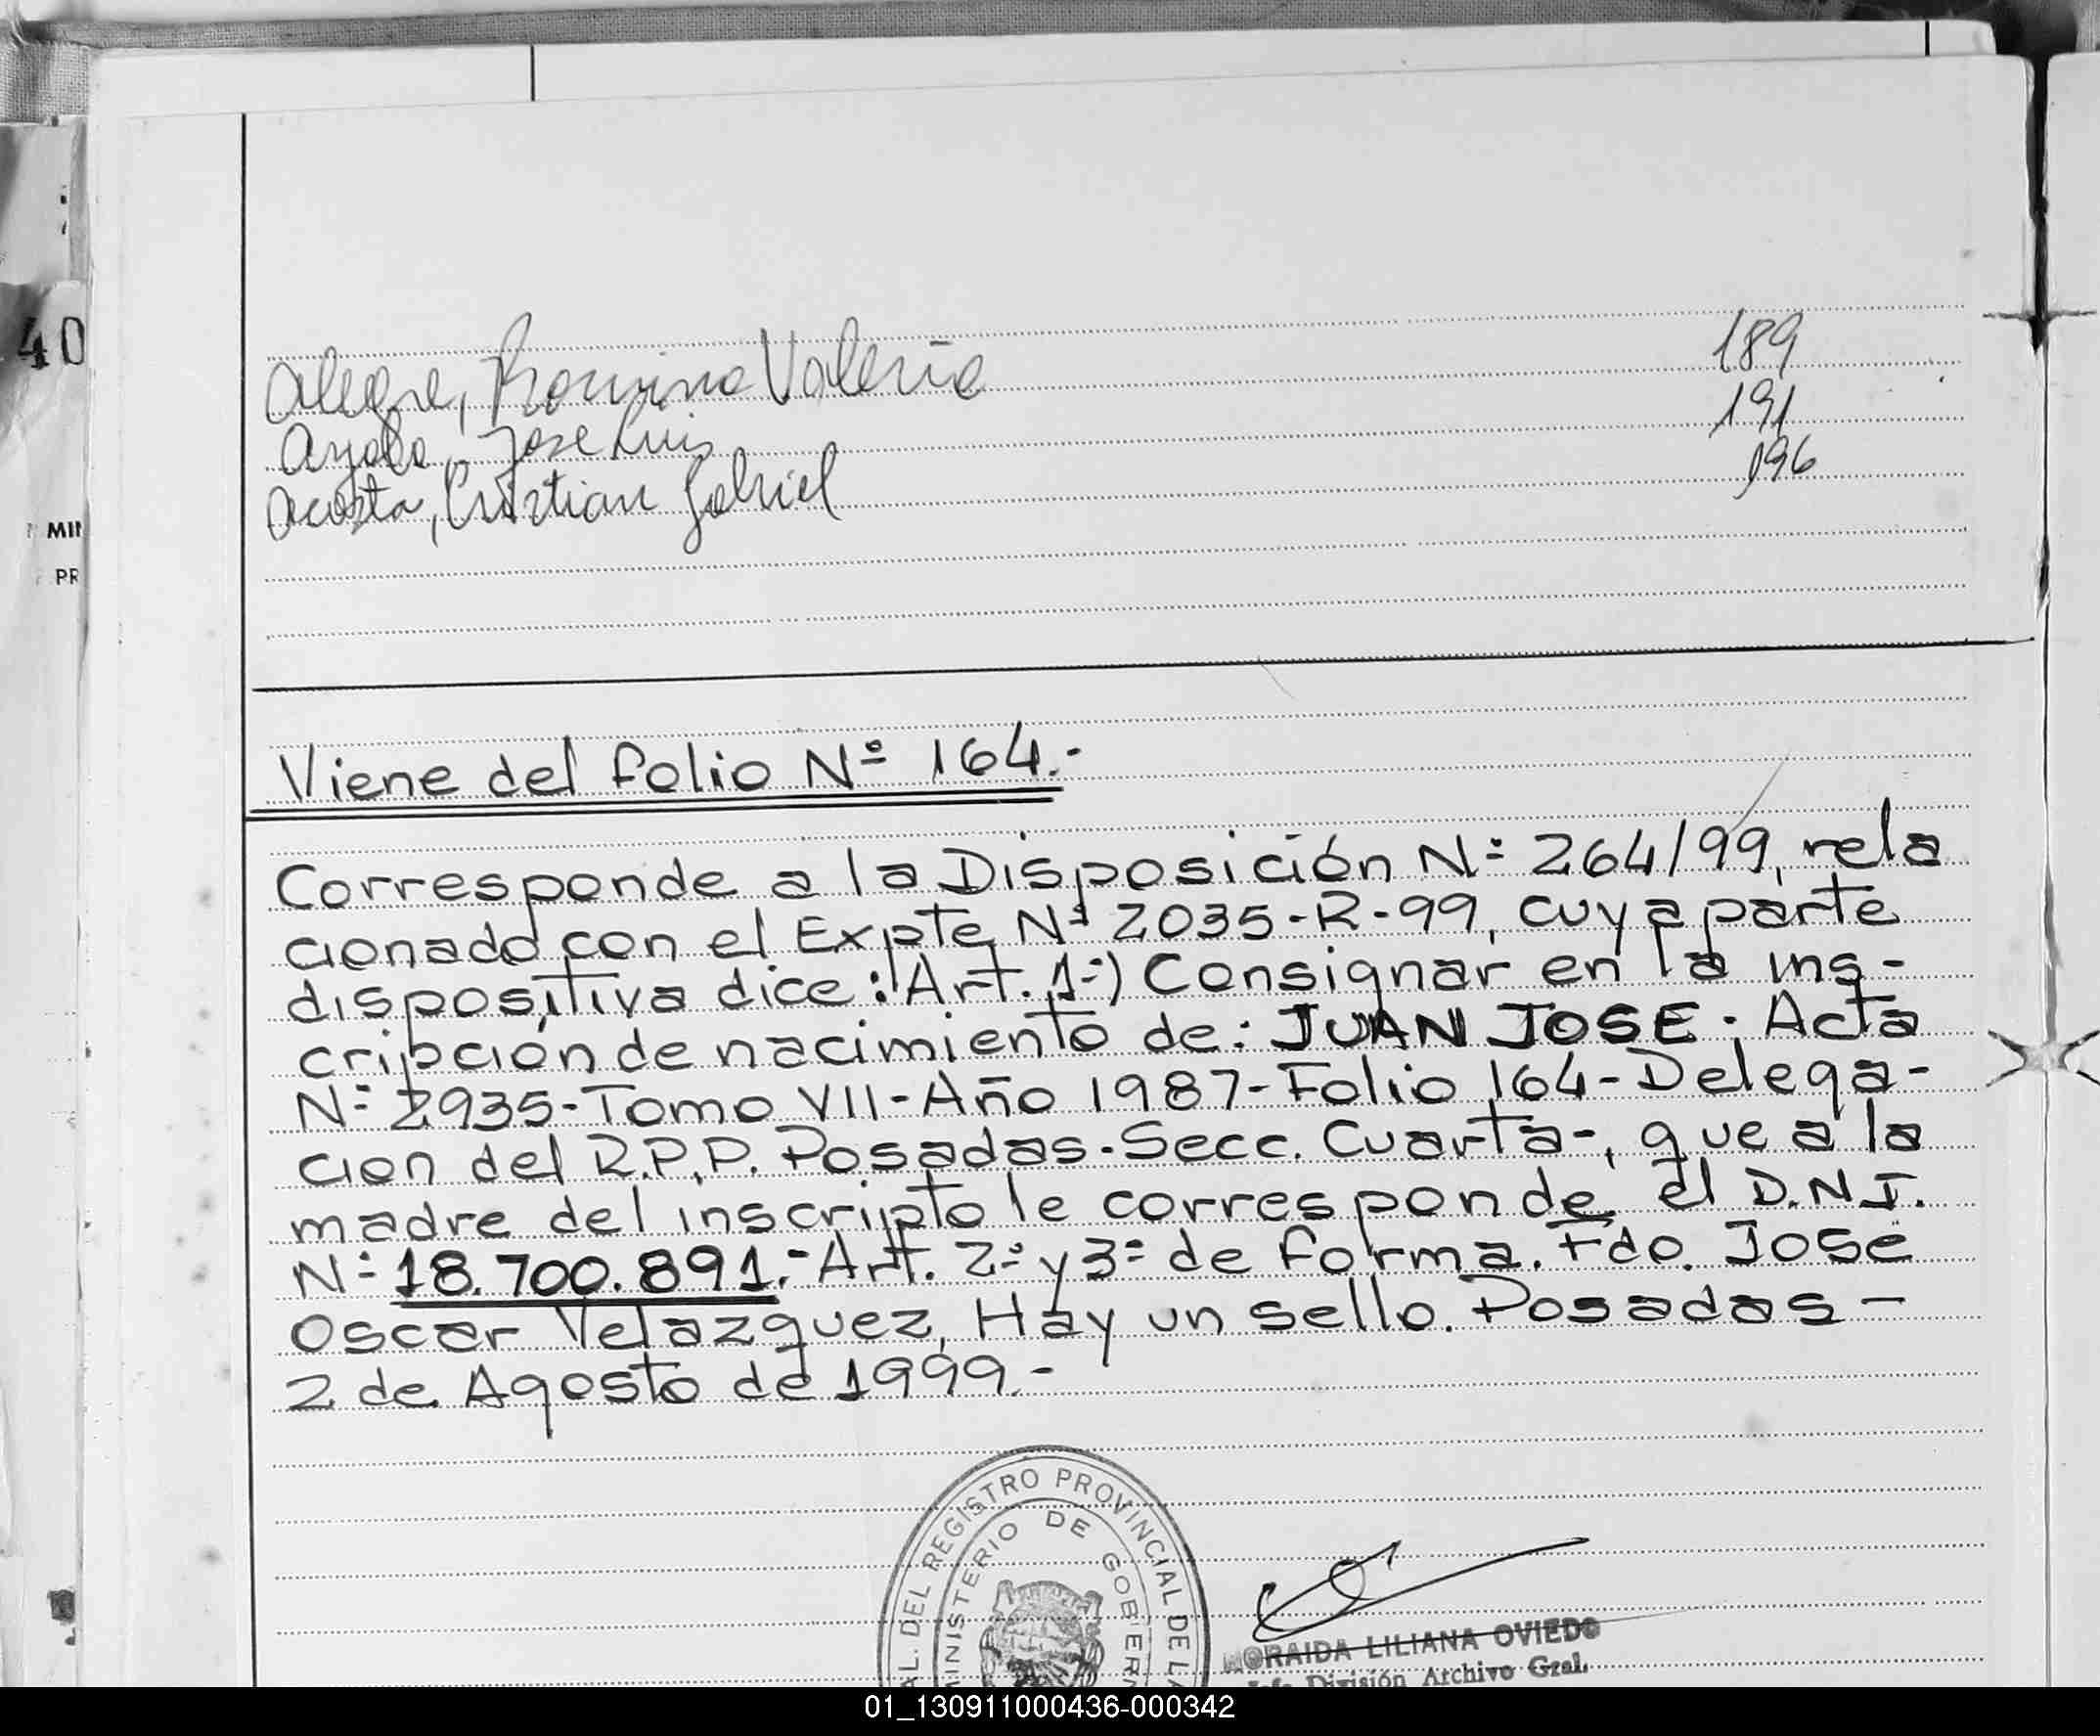 40
MIN
PR
Alegre, Romina Valeria 189
Ayala, Jose Luis 191
Acosta, Cristian Gabriel 196
Viene del folio Nº 164.-
Corresponde a la Disposición Nº 264/99, rela
cionado con el Expte Nº 2035-R-99, cuya parte
dispositiva dice: Art. 1º) Consignar en la ins-
cripción de nacimiento de: JUAN JOSE. Acta
Nº 2935-Tomo VII-Año 1987-Folio 164-Delega-
cion del R.P.P. Posadas-Secc. Cuarta-, que a la
madre del inscripto le corresponde el D.N.I.
Nº 18.700.891.-Art. 2º y 3º de forma. Fdo. José
Oscar Velazquez, Hay un sello. Posadas-
2 de Agosto de 1999.-
AL. DEL REGISTRO PROVINCIAL DE LA
MINISTERIO DE GOBIERN
LILIANA OVIEDO
División Archivo Gral.
01_130911000436-000342